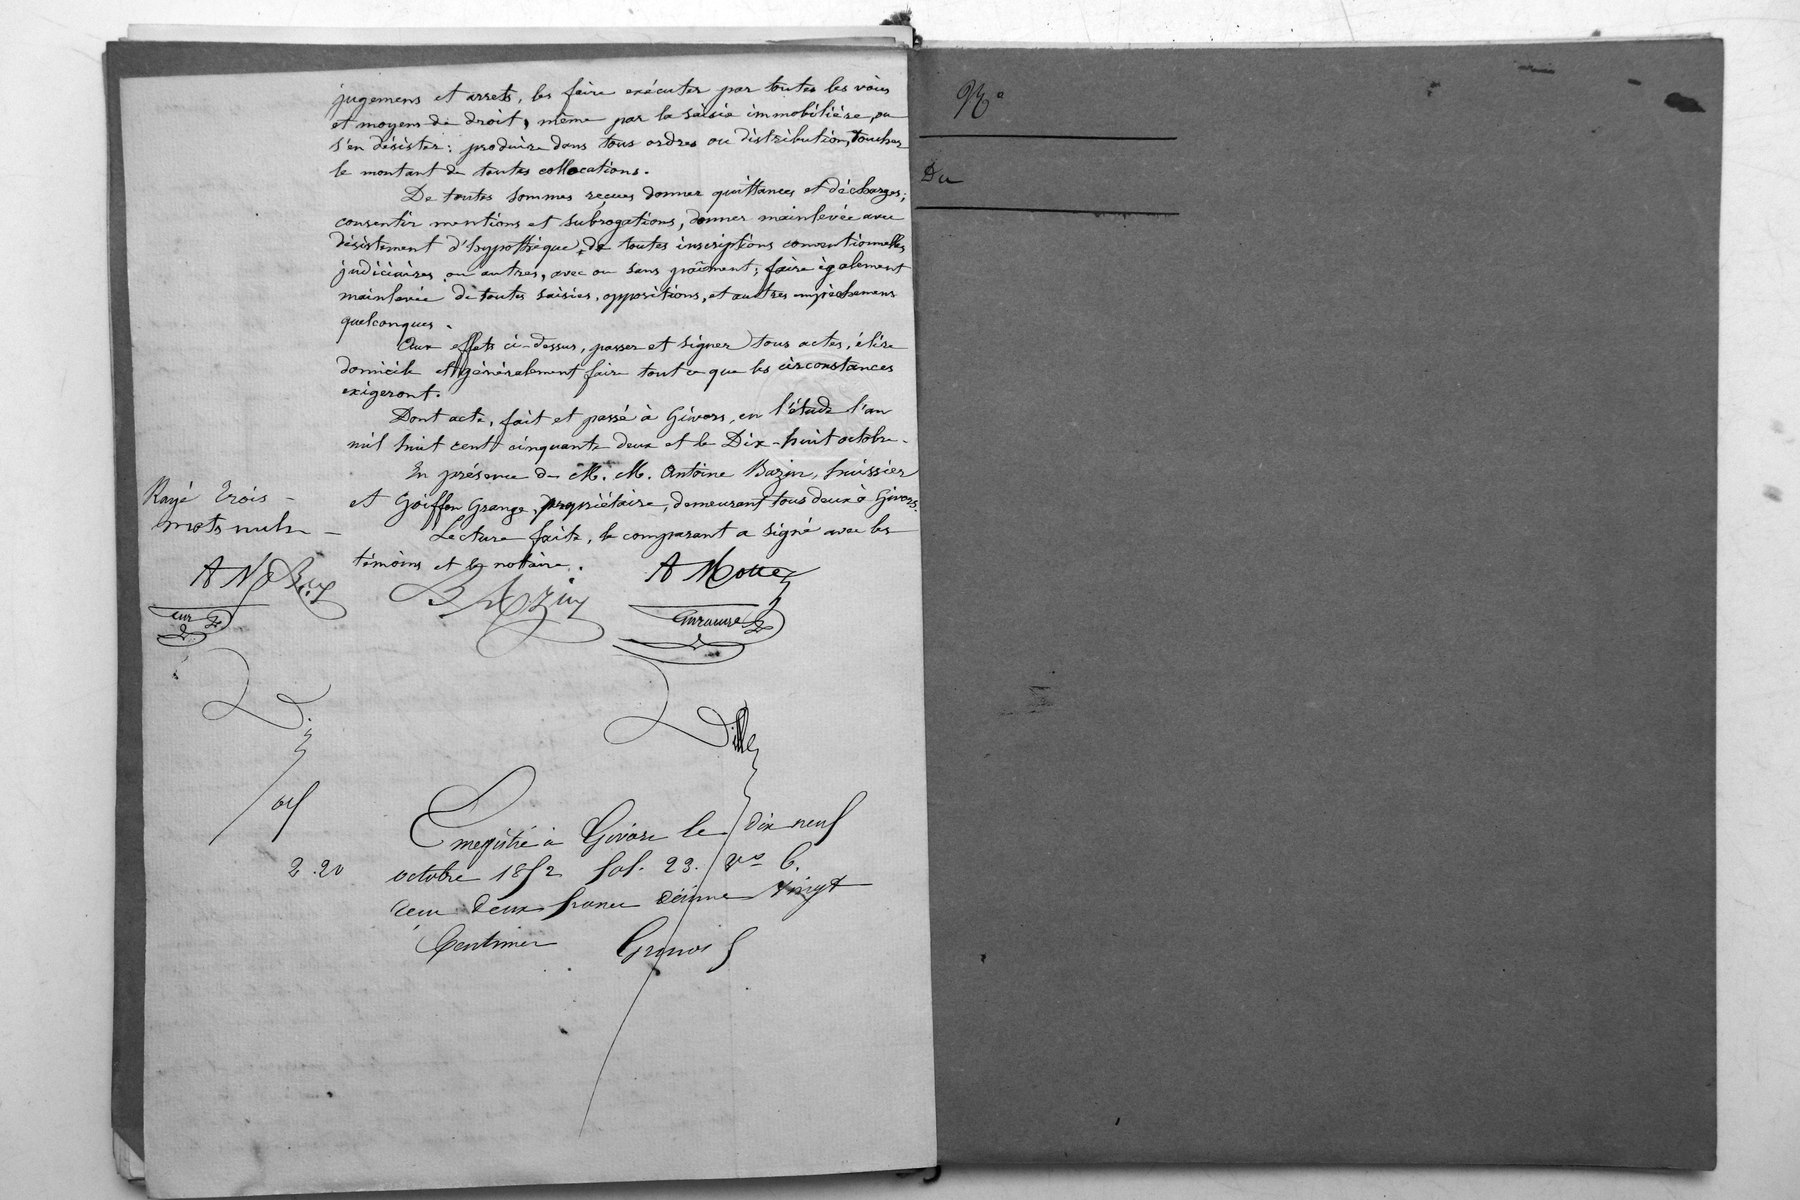 jugemens et arrets, les faire exécuter par toutes les voies
et moyens de droit, même par la saisie immobilière, ou
s'en désister : produire dans tous ordres ou distribution, toucher
le montant de toutes collocations.
De toutes sommes reçues donner quittances et décharges ;
consentir mentions et subrogations, donner mainlevée avec
désistement d'hypothèque, de toutes inscriptions conventionnelles,
judiciaires ou autres, avec ou sans paîment ; faire également
mainlevée de toutes saisies, oppositions, et autres empêchemens
quelconques.
Aux effets ci-dessus, passer et signer tous actes, élire
domicile et généralement faire tout ce que les circonstances
exigeront.
Dont acte, fait et passé à Givors, en l'étude l'an
mil huit cent cinquante deux et le Dix-huit octobre.
En présence de M. M. Antoine Bazin, huissier
et Goiffon Grange, propriétaire, demeurant tous deux à Givors.
Lecture faite, le comparant a signé avec les
témoins et le notaire.
Rayé trois
mots nuls
Bazin
A
Enregistré à Givors le dix neuf
octobre 1852 fol. 23. vo c.
2.20
reçu deux francs décime vingt
Centimes
No
Du